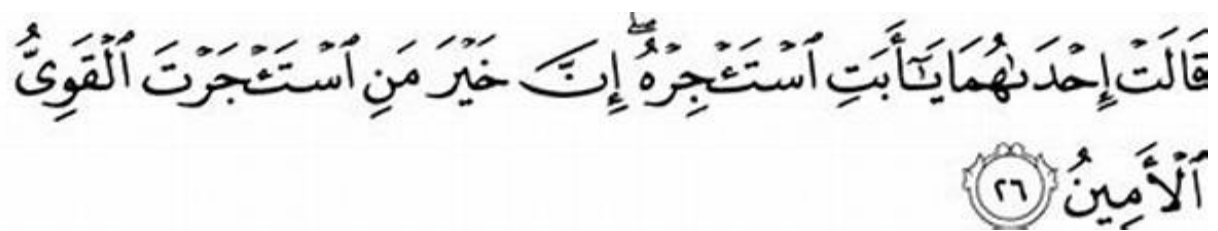 قَالَتْ إِحْدَىٰهُمَا يَـٰٓأَبَتِ ٱسْتَـْٔجِرْهُ ۖ إِنَّ خَيْرَ مَنِ ٱسْتَـْٔجَرْتَ ٱلْقَوِىُّ
ٱلْأَمِينُ ٢٦